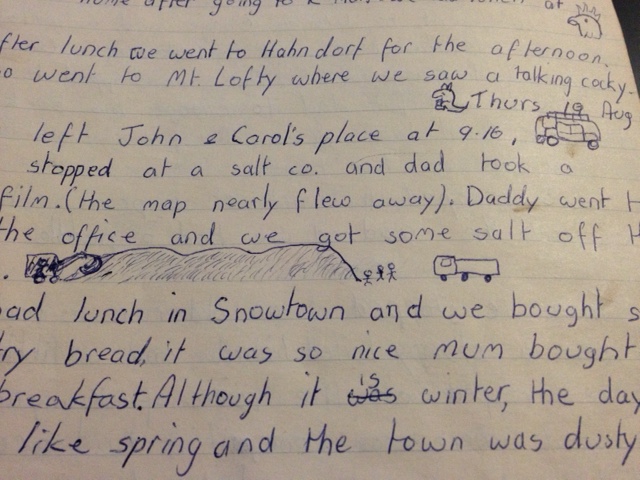 home after going to
at
fter lunch we went to Hahndorf for the afternoon.
o went to Mt. Lofty where we saw a talking cocky.
Thurs 19 Aug
left John & Carol's place at 9.16,
stopped at a salt co. and dad took a
film. (the map nearly flew away). Daddy went t
the office and we got some salt off t
.
ad lunch in Snowtown and we bought s
ry bread, it was so nice mum bought
breakfast. Although it was is winter, the day
like spring and the town was dusty